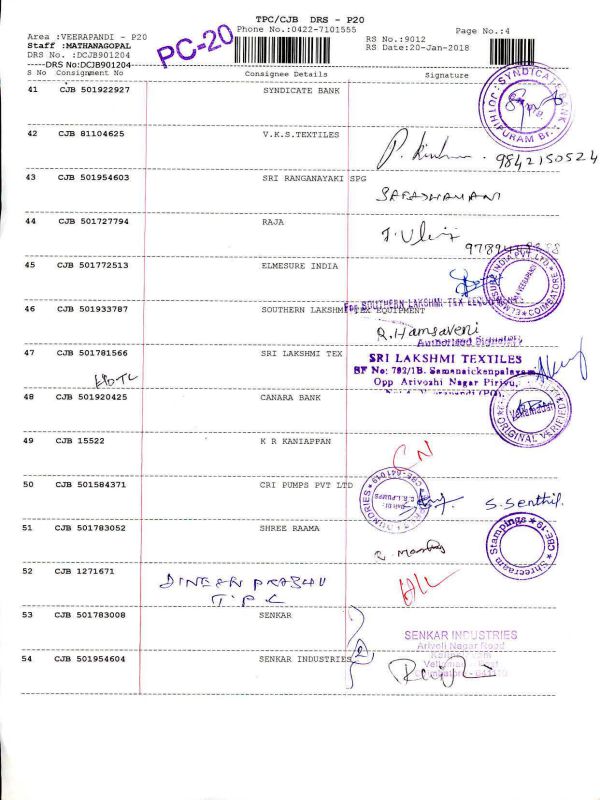 TPC/CJB DRS - P20
Phone No.:0422-7101555
Page No.:4
Area :VEERAPANDI - P20
RS No.:9012
Staff :MATHANAGOPAL
RS Date:20-Jan-2018
DRS No. :DCJB901204
----DRS No:DCJB901204
PC-20
S No Consignment No Consignee Details Signature
41 CJB 501922927 SYNDICATE BANK
SYNDICATE BANK
42 CJB 81104625 V.K.S.TEXTILES
9842150524
43 CJB 501954603 SRI RANGANAYAKI SPG
44 CJB 501727794 RAJA
45 CJB 501772513 ELMESURE INDIA
INDIA PVT. LTD. COIMBATORE
46 CJB 501933787 SOUTHERN LAKSHMI TEX EQUIPMENT
For SOUTHERN LAKSHMI TEX EQUIPMENT
R. Hamsaveni
Authorised Signatory
47 CJB 501781566 SRI LAKSHMI TEX
SRI LAKSHMI TEXTILES
SF No: 782/1B. Samanaickenpalayam
Opp Arivozhi Nagar Pirivu,
48 CJB 501920425 CANARA BANK
ORIGINAL VERIFIED
49 CJB 15522 K R KANIAPPAN
CN
50 CJB 501584371 CRI PUMPS PVT LTD
S. Senthil.
51 CJB 501783052 SHREE RAAMA
Shreeraam Stampings CBE-19
52 CJB 1271671
DINESH PRABHU
T.P.C
53 CJB 501783008 SENKAR
SENKAR INDUSTRIES
Arivoli Nagar Road
54 CJB 501954604 SENKAR INDUSTRIES
2